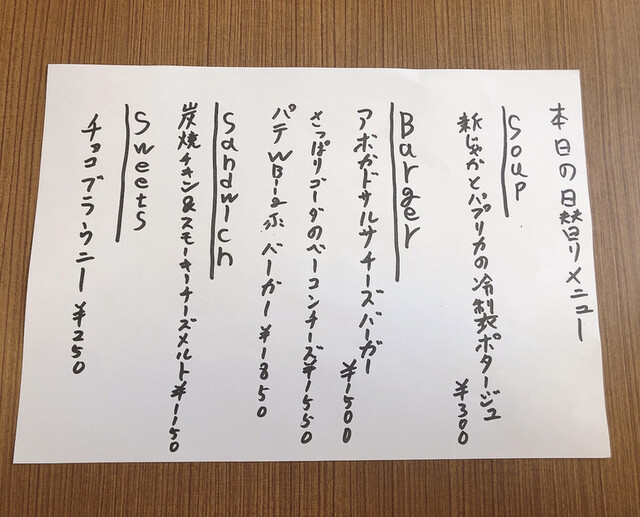 本日の日替りメニュー
Soup
新じゃがとパプリカの冷製ポタージュ ¥300
Burger
アボガドサルサチーズバーガー ¥1500
さっぱりゴーダのベーコンチーズ¥1550
パテWBig バーガー ¥1850
Sandwich
炭焼チキン&スモーキーチーズメルト¥1150
Sweets
チョコブラウニー ¥250